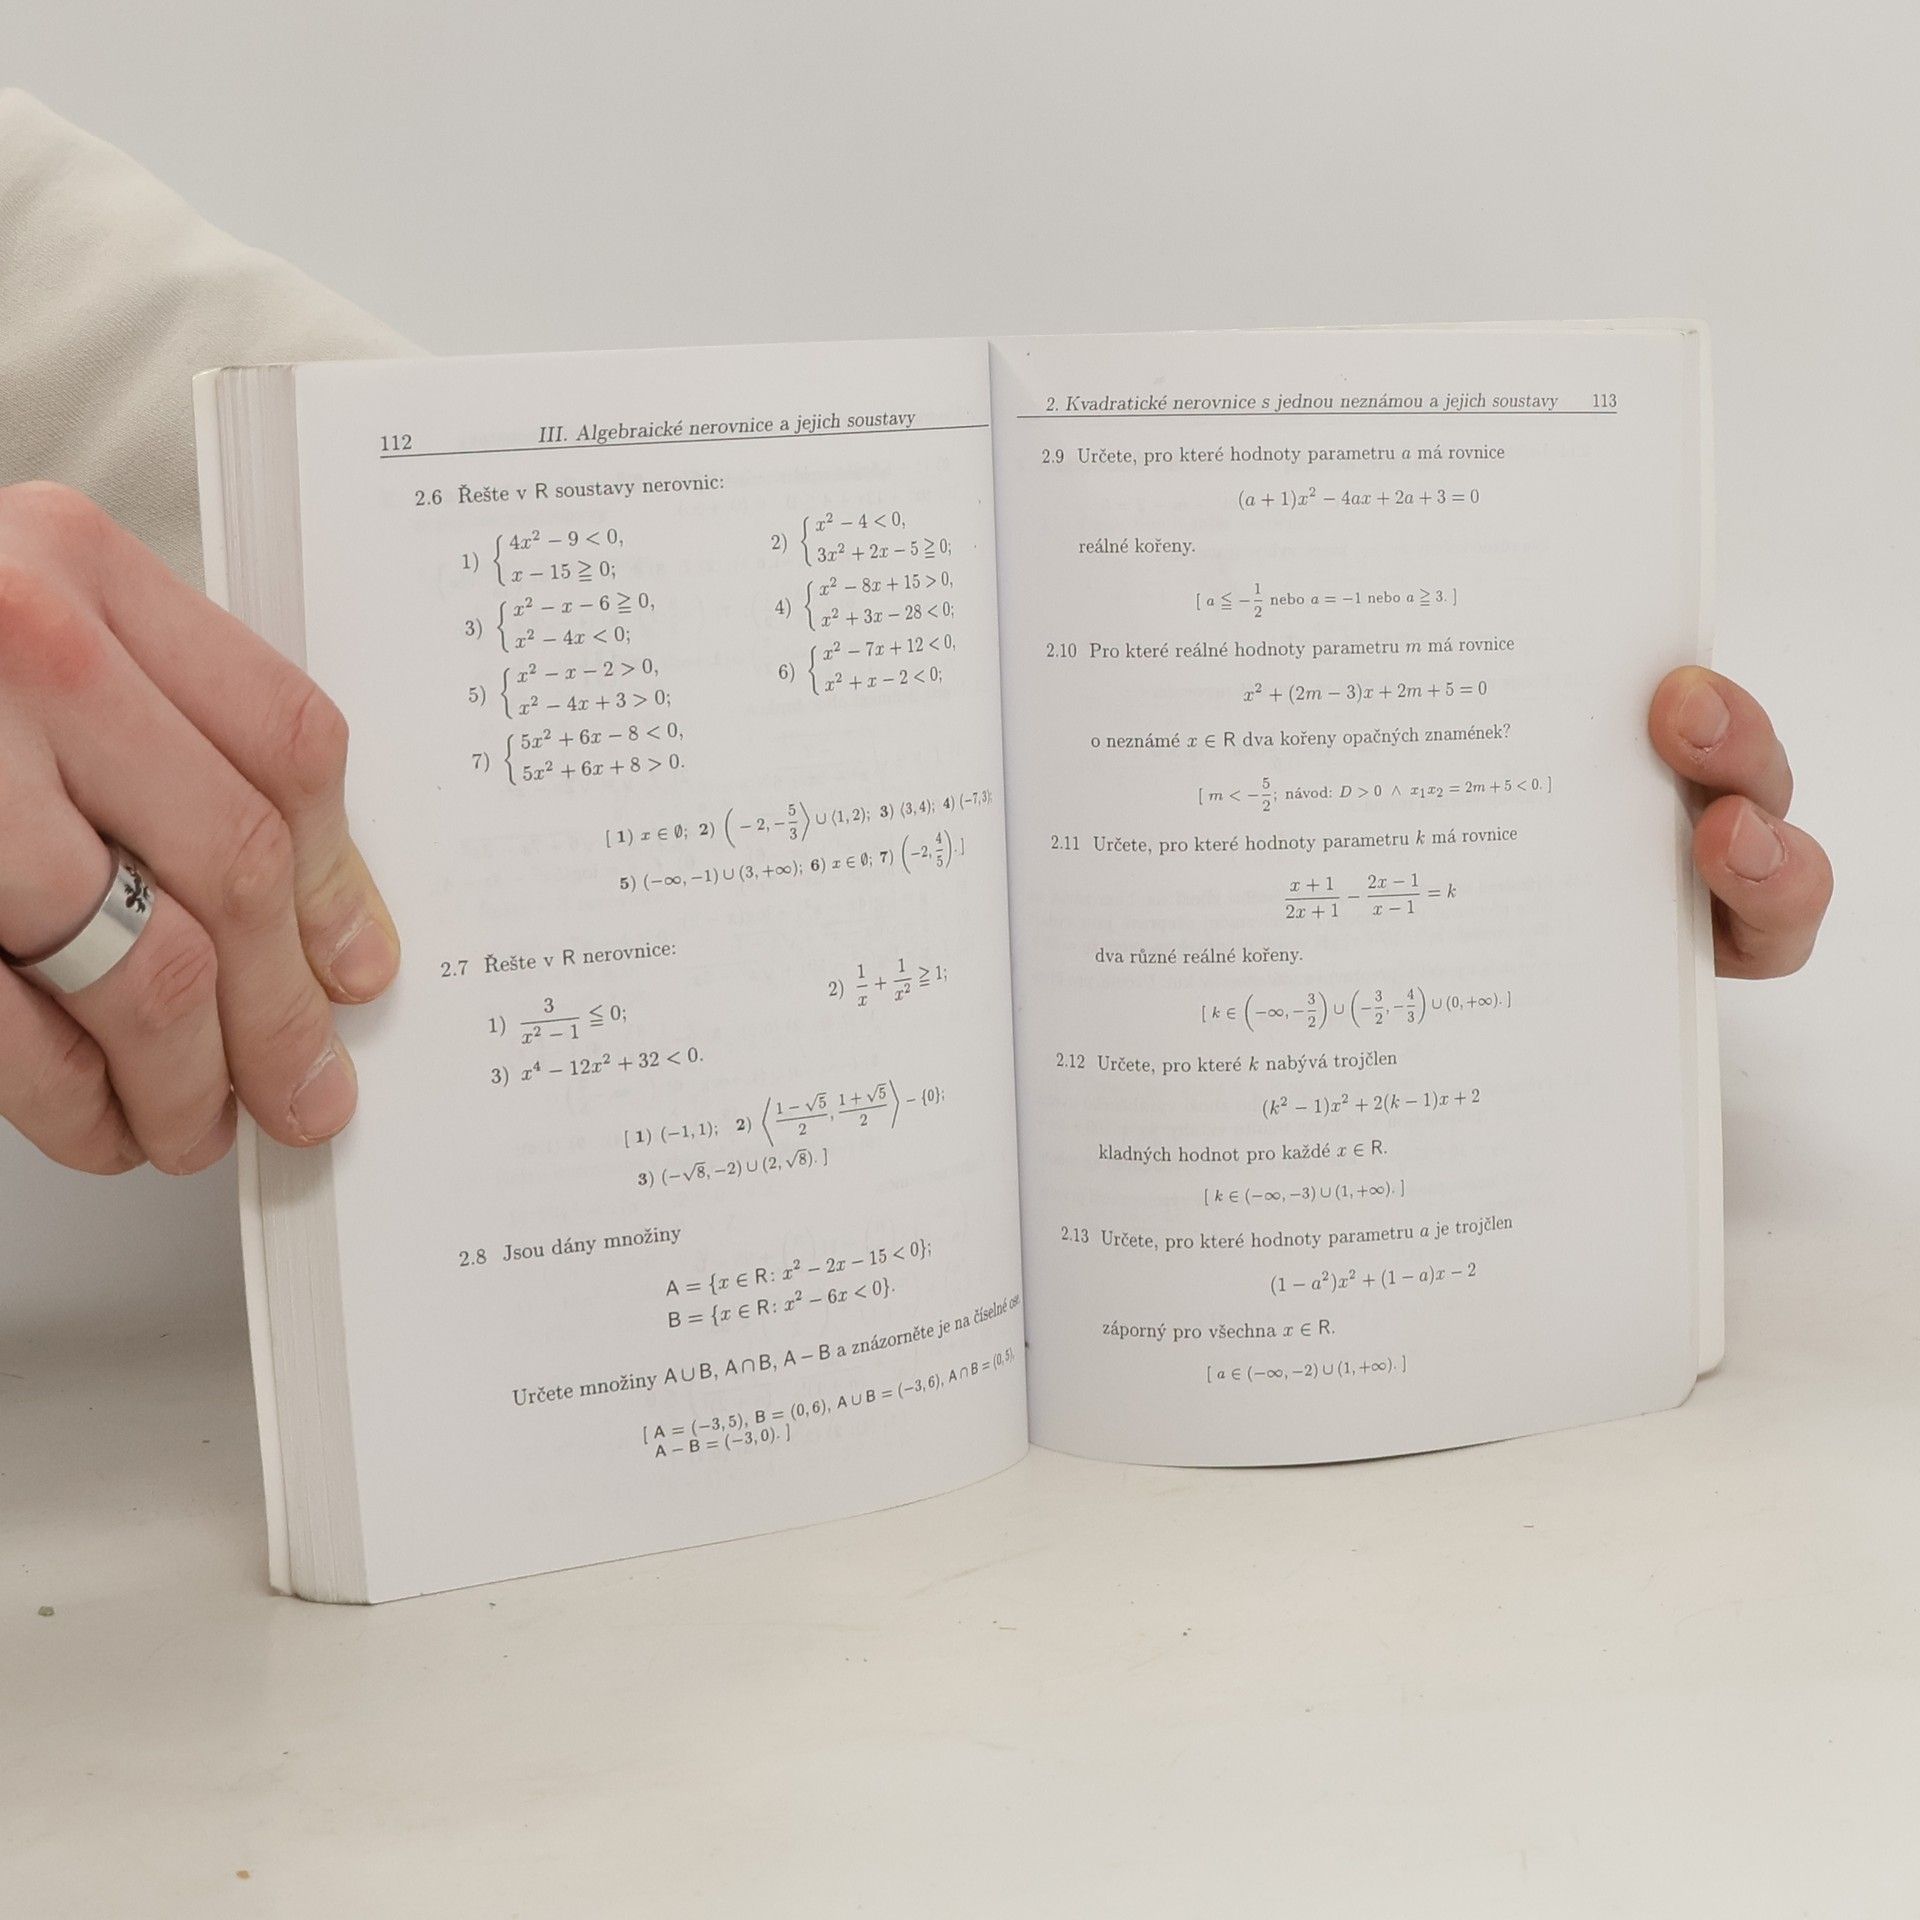 112 III. Algebraické nerovnice a jejich soustavy
2.6 Řešte v R soustavy nerovnic:
1) { 4x² − 9 < 0, x − 15 ≧ 0;
2) { x² − 4 < 0, 3x² + 2x − 5 ≧ 0;
3) { x² − x − 6 ≧ 0, x² − 4x < 0;
4) { x² − 8x + 15 > 0, x² + 3x − 28 < 0;
5) { x² − x − 2 > 0, x² − 4x + 3 > 0;
6) { x² − 7x + 12 < 0, x² + x − 2 < 0;
7) { 5x² + 6x − 8 < 0, 5x² + 6x + 8 > 0.
[ 1) x ∈ ∅; 2) (−2, −5/3⟩ ∪ ⟨1, 2); 3) ⟨3, 4); 4) (−7, 3);
5) (−∞, −1) ∪ (3, +∞); 6) x ∈ ∅; 7) (−2, 4/5). ]
2.7 Řešte v R nerovnice:
1) 3/(x² − 1) ≦ 0;
2) 1/x + 1/x² ≧ 1;
3) x⁴ − 12x² + 32 < 0.
[ 1) (−1, 1); 2) ⟨(1 − √5)/2, (1 + √5)/2⟩ − {0};
3) (−√8, −2) ∪ (2, √8). ]
2.8 Jsou dány množiny
A = {x ∈ R: x² − 2x − 15 < 0};
B = {x ∈ R: x² − 6x < 0}.
Určete množiny A ∪ B, A ∩ B, A − B a znázorněte je na číselné ose.
[ A = (−3, 5), B = (0, 6), A ∪ B = (−3, 6), A ∩ B = (0, 5),
A − B = (−3, 0⟩. ]
2. Kvadratické nerovnice s jednou neznámou a jejich soustavy 113
2.9 Určete, pro které hodnoty parametru a má rovnice
(a + 1)x² − 4ax + 2a + 3 = 0
reálné kořeny.
[ a ≦ −1/2 nebo a = −1 nebo a ≧ 3. ]
2.10 Pro které reálné hodnoty parametru m má rovnice
x² + (2m − 3)x + 2m + 5 = 0
o neznámé x ∈ R dva kořeny opačných znamének?
[ m < −5/2; návod: D > 0 ∧ x₁x₂ = 2m + 5 < 0. ]
2.11 Určete, pro které hodnoty parametru k má rovnice
(x + 1)/(2x + 1) − (2x − 1)/(x − 1) = k
dva různé reálné kořeny.
[ k ∈ (−∞, −3/2) ∪ (−3/2, −4/3) ∪ (0, +∞). ]
2.12 Určete, pro které k nabývá trojčlen
(k² − 1)x² + 2(k − 1)x + 2
kladných hodnot pro každé x ∈ R.
[ k ∈ (−∞, −3) ∪ (1, +∞). ]
2.13 Určete, pro které hodnoty parametru a je trojčlen
(1 − a²)x² + (1 − a)x − 2
záporný pro všechna x ∈ R.
[ a ∈ (−∞, −2) ∪ (1, +∞). ]